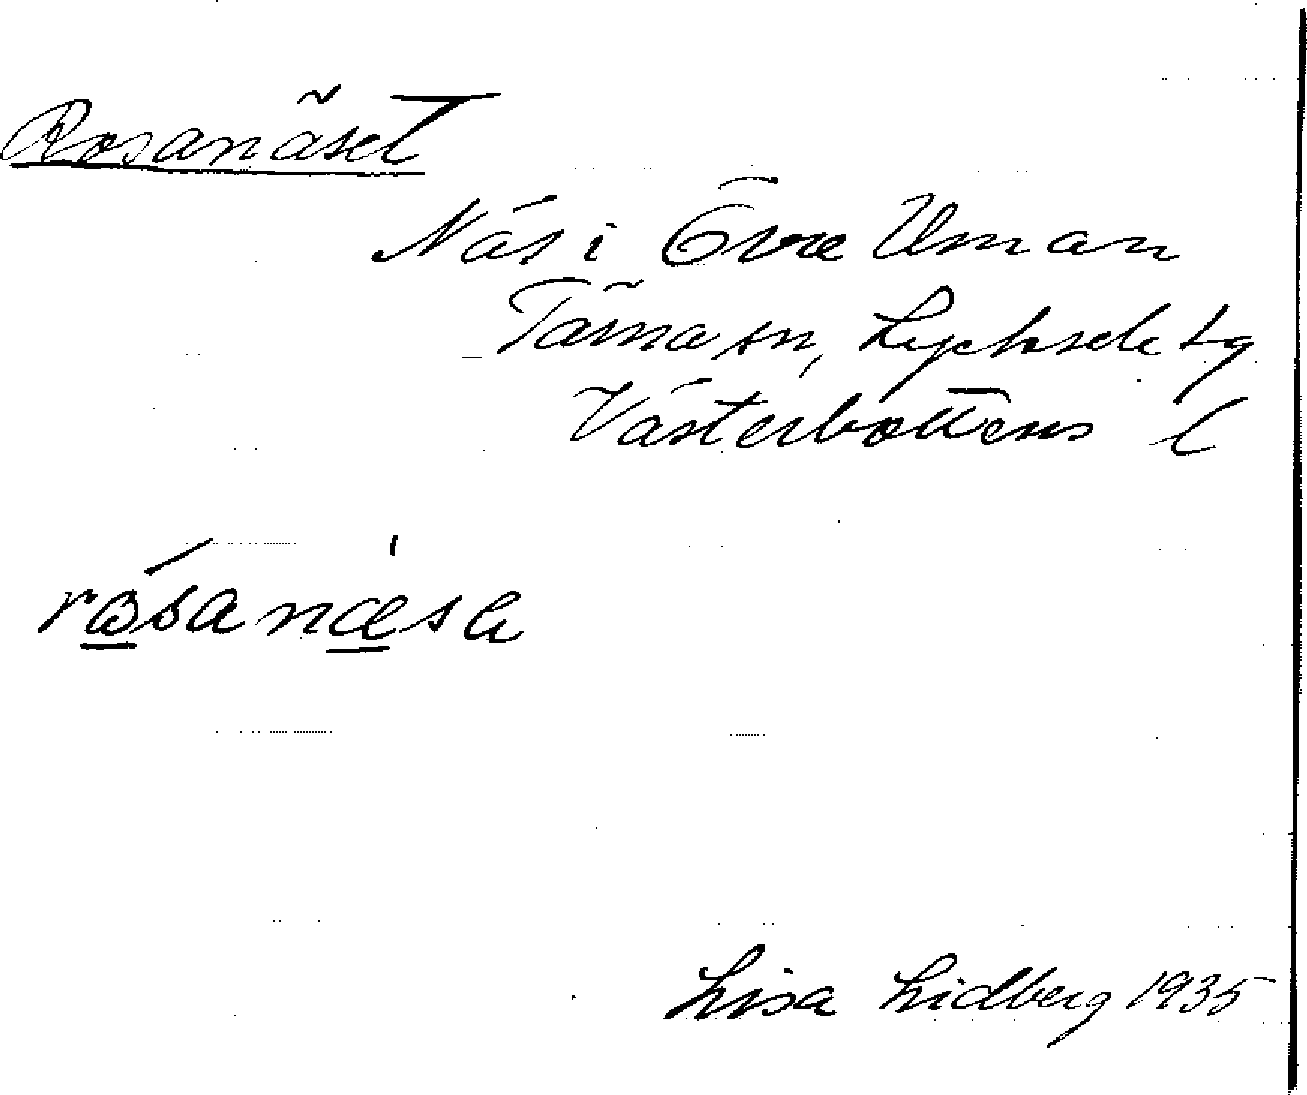 Rosanäset
Näs i Övre Uman
Tärna sn, Lycksele tg
Västerbottens l
rósanǽse
Lisa Lidberg 1935